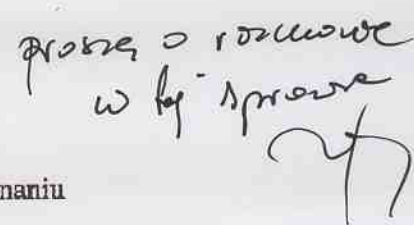 proszę o rozmowę
w tej sprawie
naniu